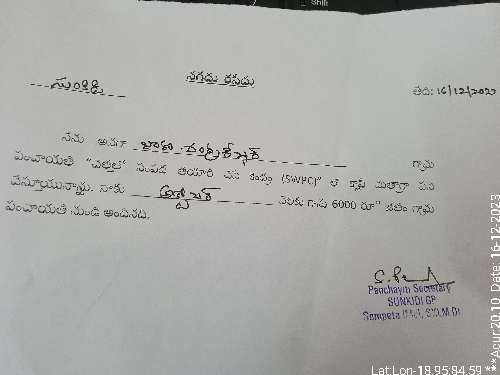 Shift
నగదు రశీదు
సుంకిడి
తేది: 16/12/2023
నేను అనగా గ్రామ
పంచాయతి "చెత్తతో సంపద తయారి చేసే కేంద్రం (SWPC)" లో క్లాప్ మిత్రాగా పని
చేస్తున్నాను. నాకు అక్టోబర్ నెలకు గాను 6000 రూ" జీతం గ్రామ
పంచాయతి నుండి అందినది.
Panchayth Secretary
SUNKIDI GP
Lat Lon-18.95:84.59
***Acur:20.10 Date: 16-12-2023